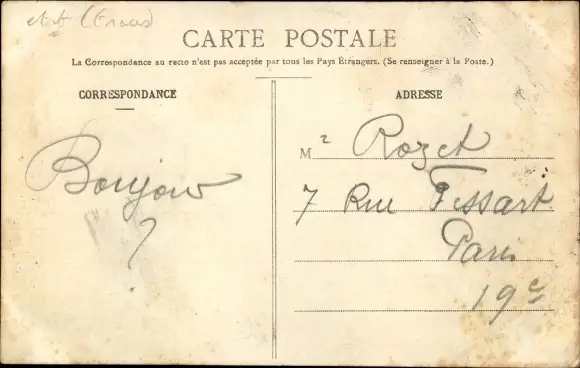 CARTE POSTALE
La Correspondance au recto n'est pas acceptée par tous les Pays Étrangers. (Se renseigner à la Poste.)
CORRESPONDANCE
Bonjour
?
ADRESSE
Mr Rozet
7 Rue Tessart
Paris
19e